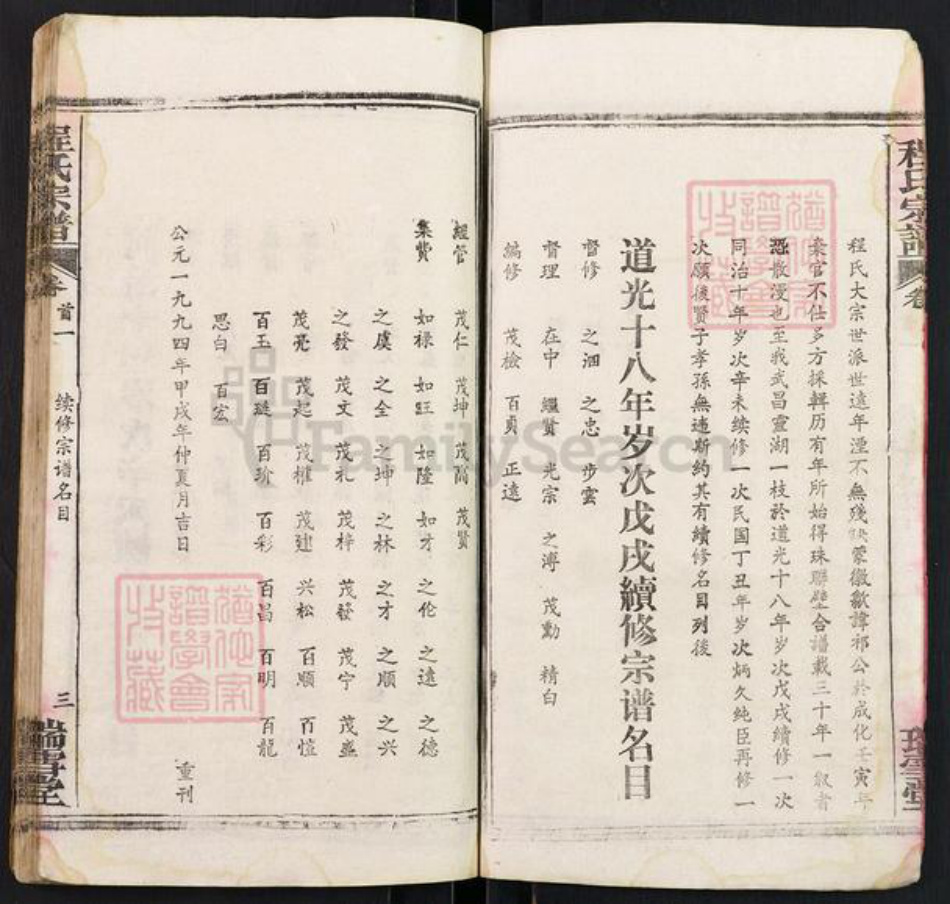 程氏宗譜
卷
瑞雪堂
程氏大宗世派世遠年湮不無殘缺蒙徽歙諱祁公於成化壬寅年
棄官不仕多方採輯历有年所始得珠聯璧合譜載三十年一敘者
恐散漫也至我武昌靈湖一枝於道光十八年岁次戊戌續修一次
同治十年岁次辛未续修一次民国丁丑年岁次炳久純臣再修一
次願後賢子孝孫無違斯約其有續修名目列後
道光十八年岁次戊戌續修宗谱名目
督修 之泗 之忠 步雲
督理 在中 繼賢 光宗 之溥 茂勳 精白
编修 茂檢 百貝 正遠
經管 茂仁 茂坤 茂高 茂賢
集費 如禄 如旺 如隆 如才 之伦 之遠 之德
之虞 之全 之坤 之林 之才 之順 之兴
之發 茂文 茂礼 茂梓 茂發 茂宁 茂盛
茂亮 茂起 茂權 茂建 兴松 百順 百愷
百玉 百璉 百玠 百彩 百昌 百明 百龍
思白 百宏
公元一九九四年甲戌年仲夏月吉日 重刊
程氏宗譜
卷首一
续修宗谱名目
三
瑞雪堂
FamilySearch